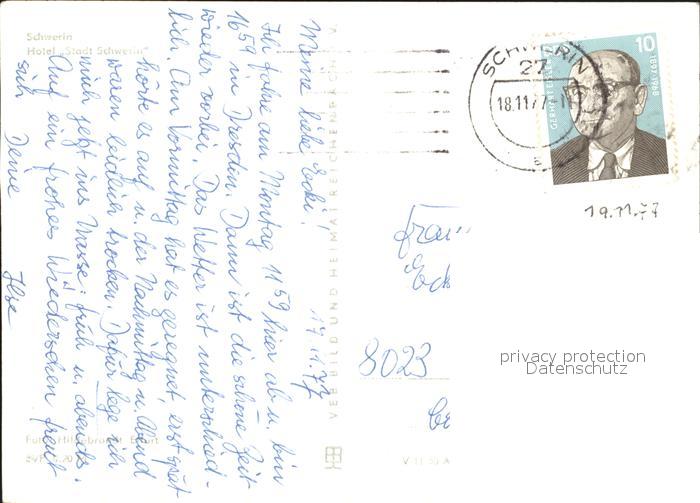 Schwerin
Hotel „Stadt Schwerin"
17.11.77
Meine liebe Ecki!
Ich fahre am Montag 11⁵⁹ hier ab u. bin
16⁵⁹ in Dresden. Dann ist die schöne Zeit
wieder vorbei. Das Wetter ist unterschied-
lich. Am Vormittag hat es geregnet, erst spät
hörte es auf u. der Nachmittag u. Abend
waren leidlich trocken. Dafür lege ich
mich jetzt ins Wasser: früh u. abends.
Auf ein frohes Wiedersehen freut
sich Deine
Ilse
Foto: Hildebrandt, Erfurt
VEB BILD UND HEIMAT REICHENBACH
SCHWERIN
27
18.11.77
10
GERHART
1897-1968
19.11.77
Frau
8023
privacy protection
Datenschutz